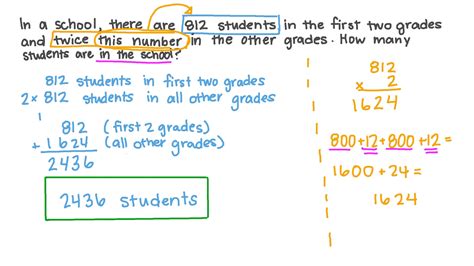 In a school, there are 812 students in the first two grades
and twice this number in the other grades. How many
students are in the school?
812 students in first two grades
2 × 812 students in all other grades
1
812 (first 2 grades)
+ 1624 (all other grades)
2436
2436 students
812
x 2
1624
800+12+800+12=
1600+24=
1624